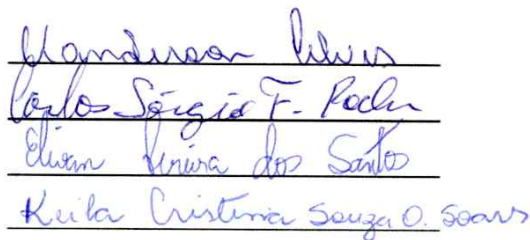 Wanderson
Carlos Sérgio F. Rocha
Elivan Pereira dos Santos
Keila Cristina Souza O. Soares